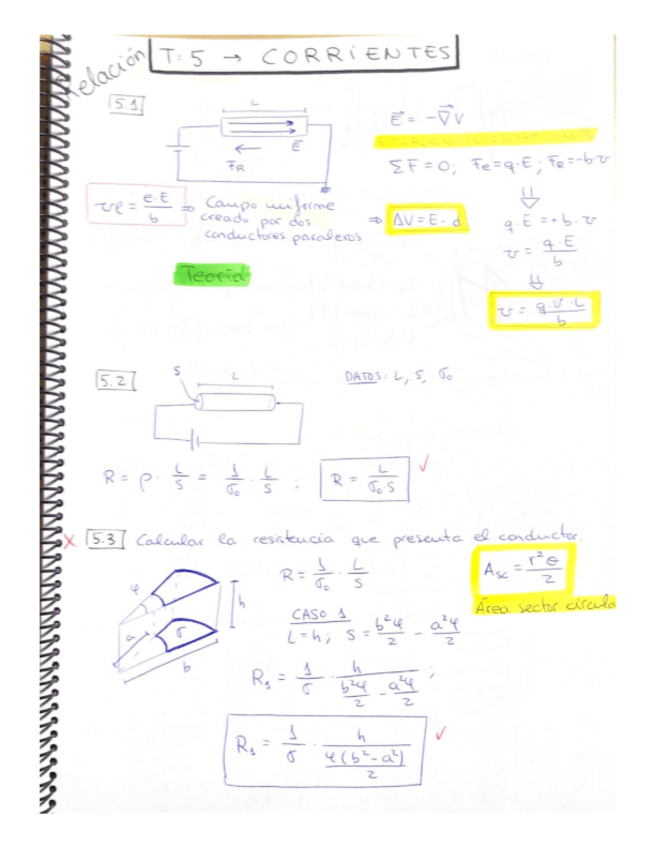 Relación
T:5 → CORRIENTES
5.1
L
E⃗ = -∇⃗V
E⃗
F⃗R
ΣF = 0; Fe = q·E; FR = -b·v
vl = e·E / b ⇒ Campo uniforme creado por dos conductores paralelos ⇒ ΔV = E·d
q·E = +b·v
v = q·E / b
Teoría
v = q·V·L / b
5.2
S
L
DATOS: L, S, σ₀
R = ρ · L/S = 1/σ₀ · L/S ; R = L / σ₀·S ✓
x 5.3 Calcular la resistencia que presenta el conductor.
φ
h
a
σ
b
R = 1/σ₀ · L/S
Asc = r²θ / 2
Área sector circula
CASO 1
L = h; S = b²φ/2 - a²φ/2
R₁ = 1/σ · h / (b²φ/2 - a²φ/2) ;
R₁ = 1/σ · h / (φ(b²-a²)/2) ✓